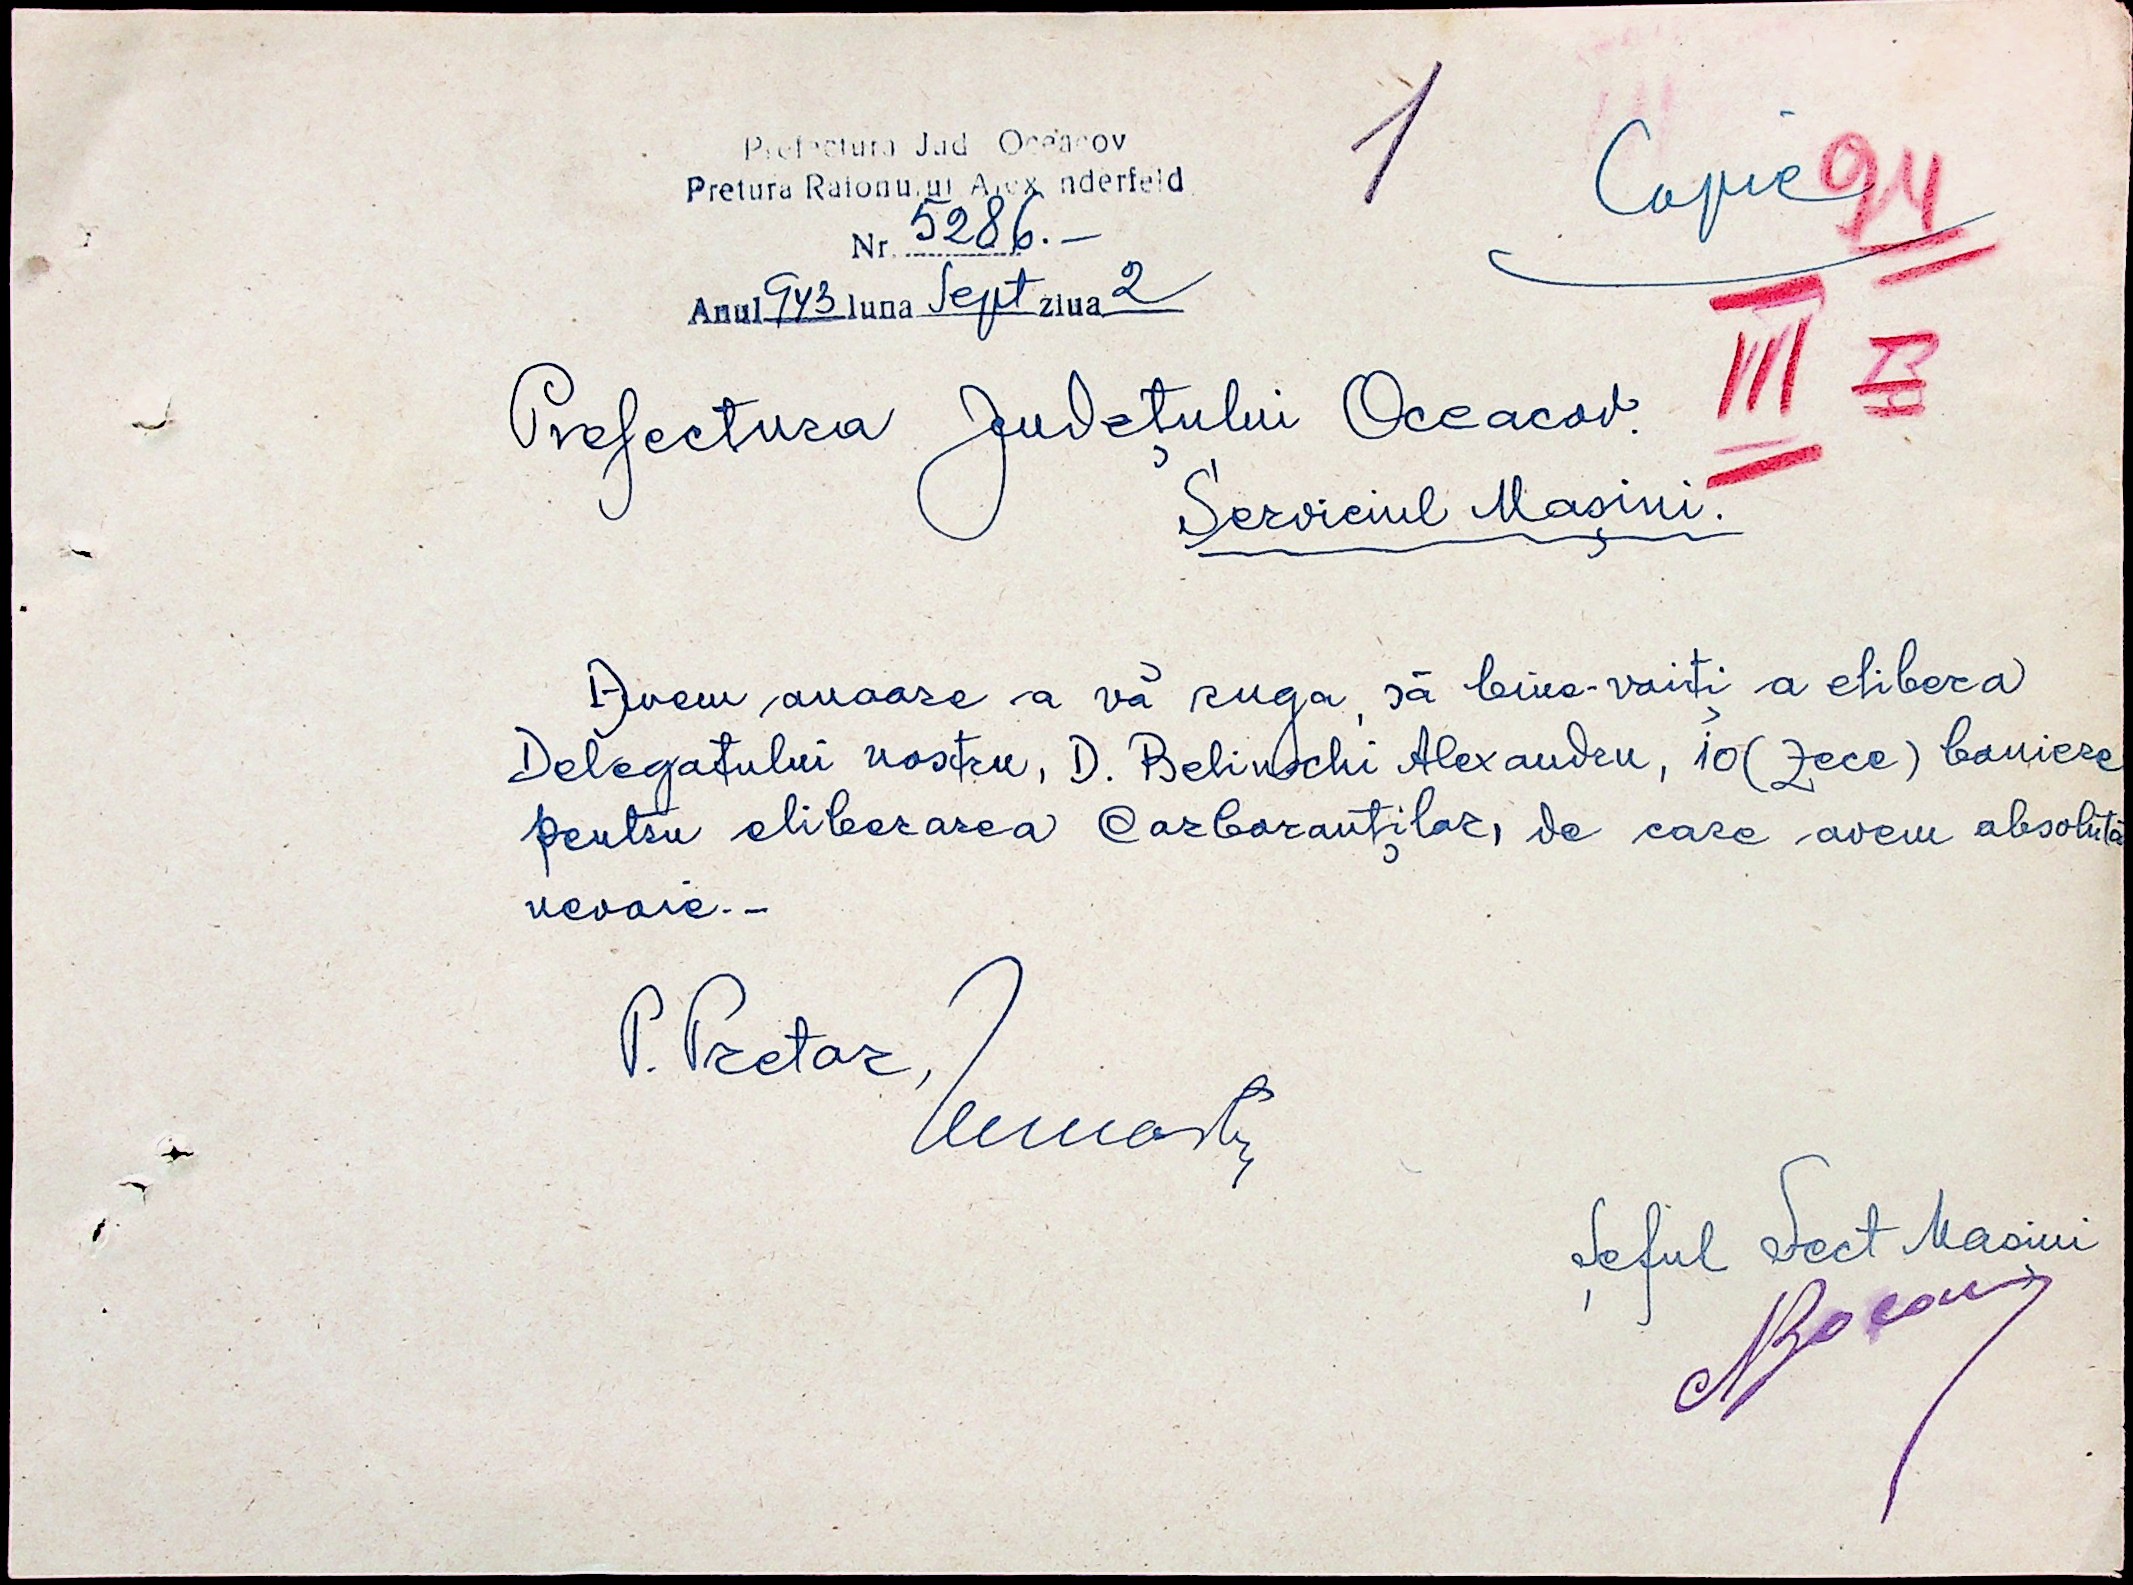 1
Copie
94
Prefectura Jud Oceacov
Pretura Raionului Alexanderfeld
Nr. 5286.-
Anul 943 luna Sept ziua 2
III
Prefectura Județului Oceacov.
Serviciul Mașini.
Avem onoare a vă ruga, să bine-voiți a elibera
Delegatului nostru, D. Belinschi Alexandru, 10 (Zece) boniere
pentru eliberarea Carboranților, de care avem absolută
nevoie.-
P. Pretor,
Șeful Sect Mașini